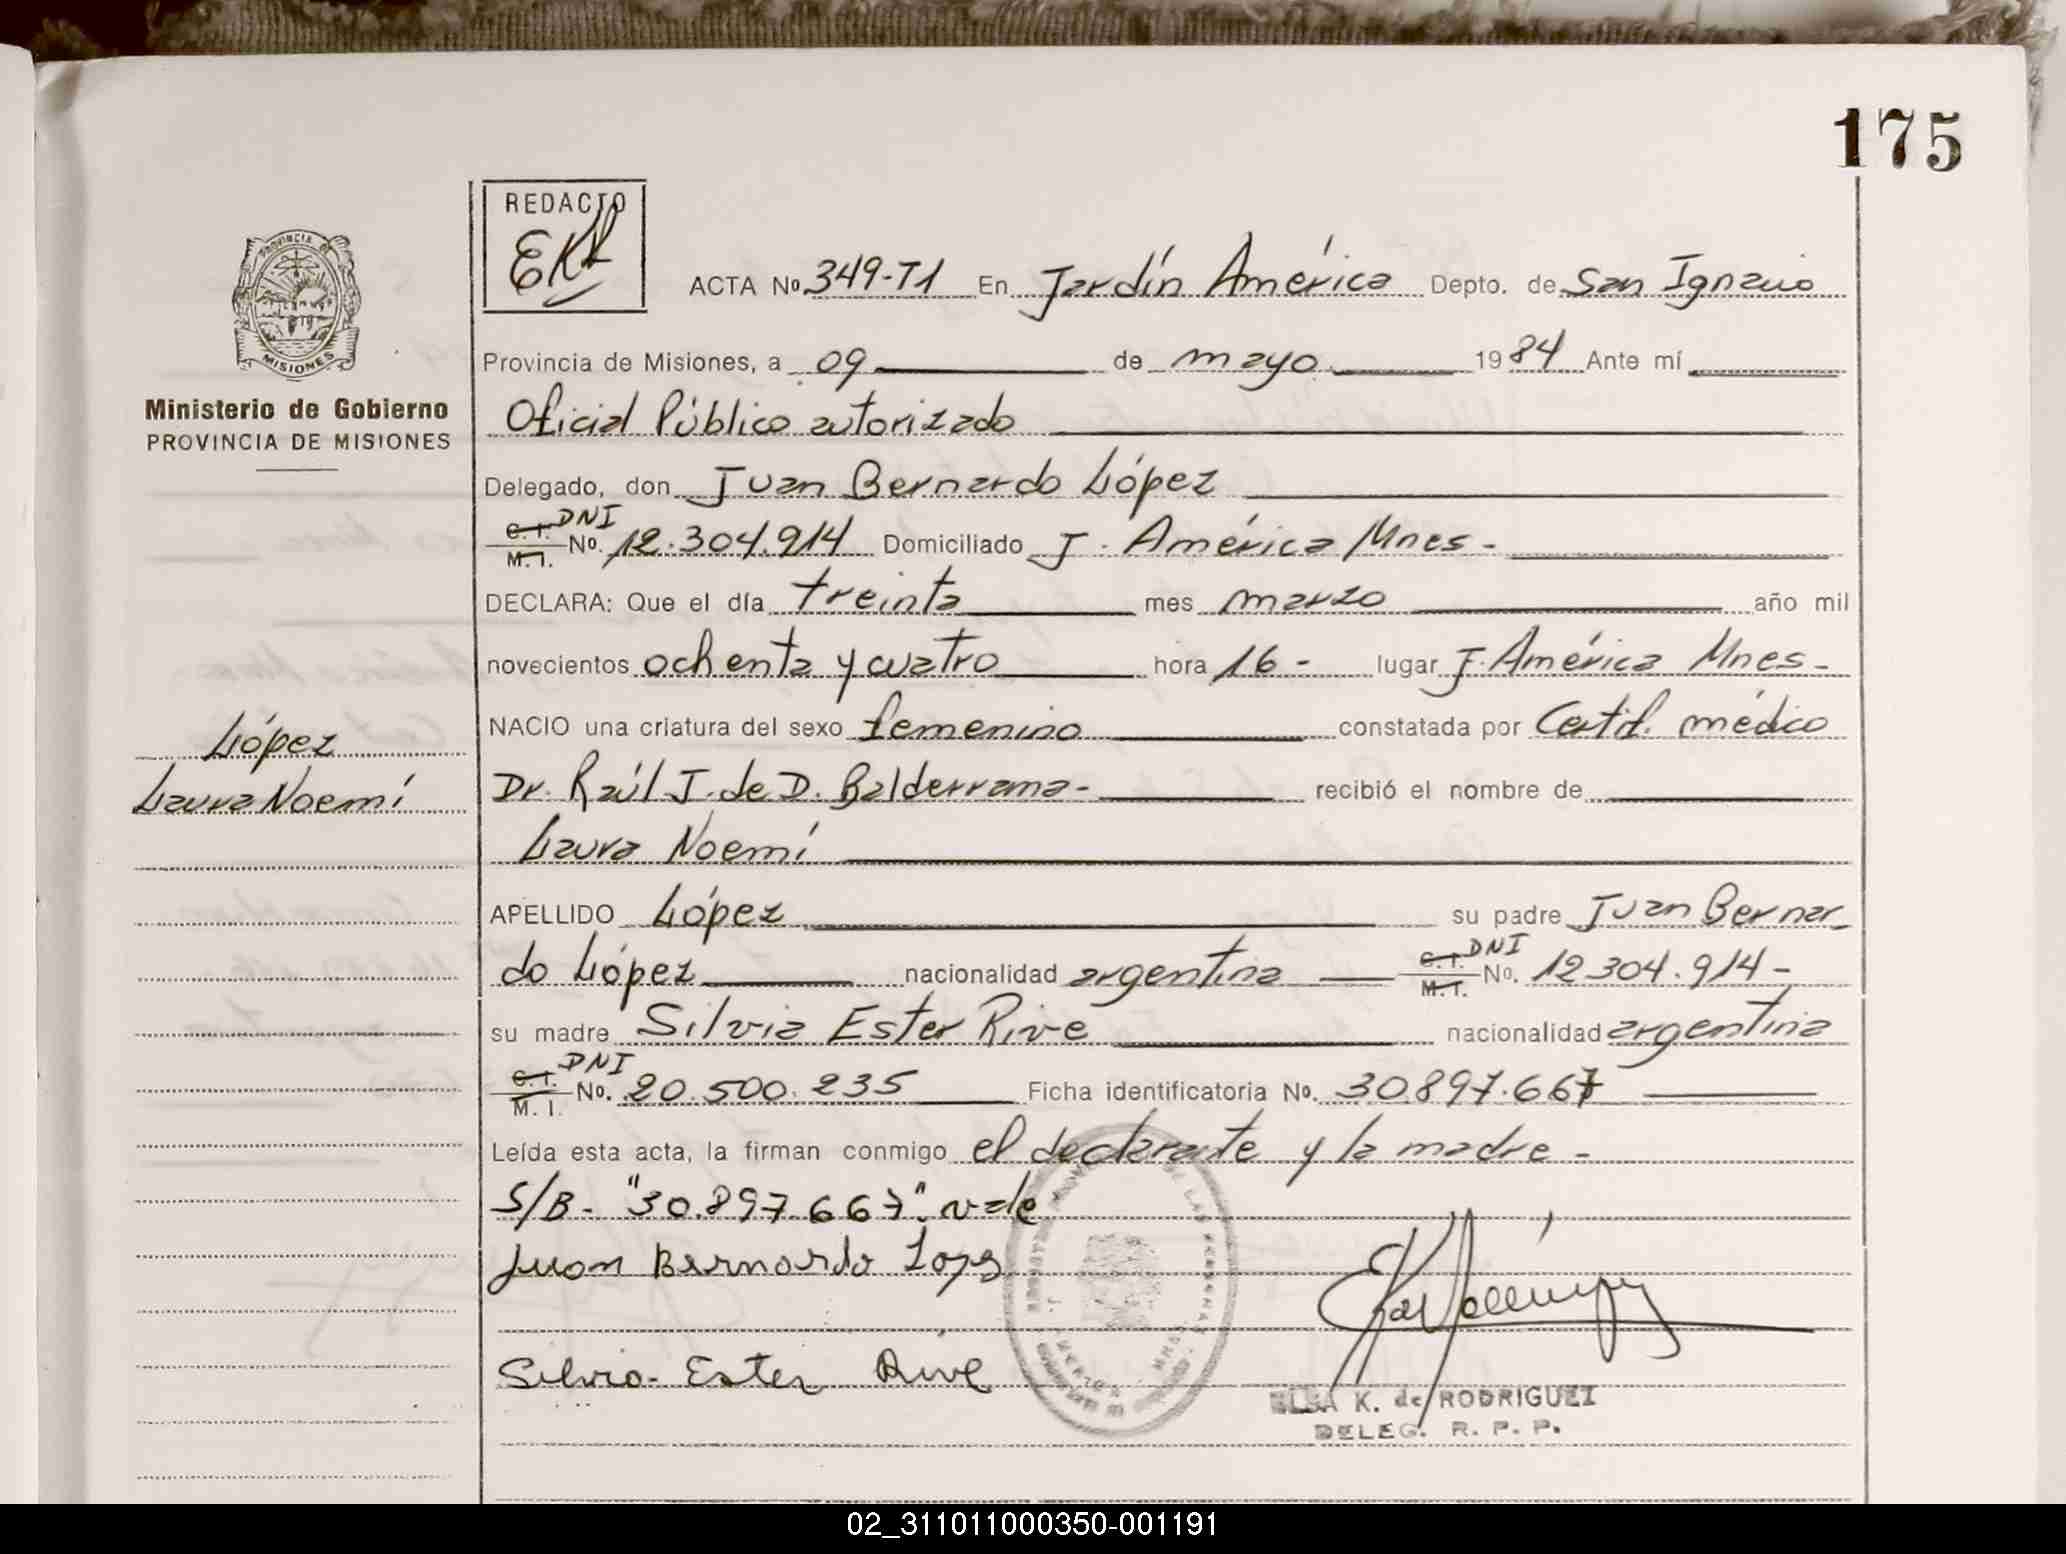 175
REDACTO
EKR
PROVINCIA DE
MISIONES
Ministerio de Gobierno
PROVINCIA DE MISIONES
ACTA No. 349-T1 En Jardín América Depto. de San Ignacio
Provincia de Misiones, a 09 de mayo 1984 Ante mí
Oficial Público autorizado
Delegado, don Juan Bernardo López
C.I. M.I. DNI No. 12.304.914 Domiciliado J. América Mnes-
DECLARA: Que el día treinta mes marzo año mil
novecientos ochenta y cuatro hora 16- lugar J. América Mnes-
NACIO una criatura del sexo femenino constatada por Certif. médico
Dr. Raúl J. de D. Balderrama- recibió el nombre de
Laura Noemí
López
Laura Noemí
APELLIDO López su padre Juan Bernar
do López nacionalidad argentina C.I. M.I. DNI No. 12304.914-
su madre Silvia Ester Rive nacionalidad argentina
C.I. M.I. DNI No. 20.500.235 Ficha identificatoria No. 30.897.667
Leída esta acta, la firman conmigo el declarante y la madre-
S/B- "30.897.667". vale
Juan Bernardo Lopez
Silvia Ester Rive
DE LAS PERSONAS
ELSA K. de RODRIGUEZ
DELEG. R. P. P.
02_311011000350-001191